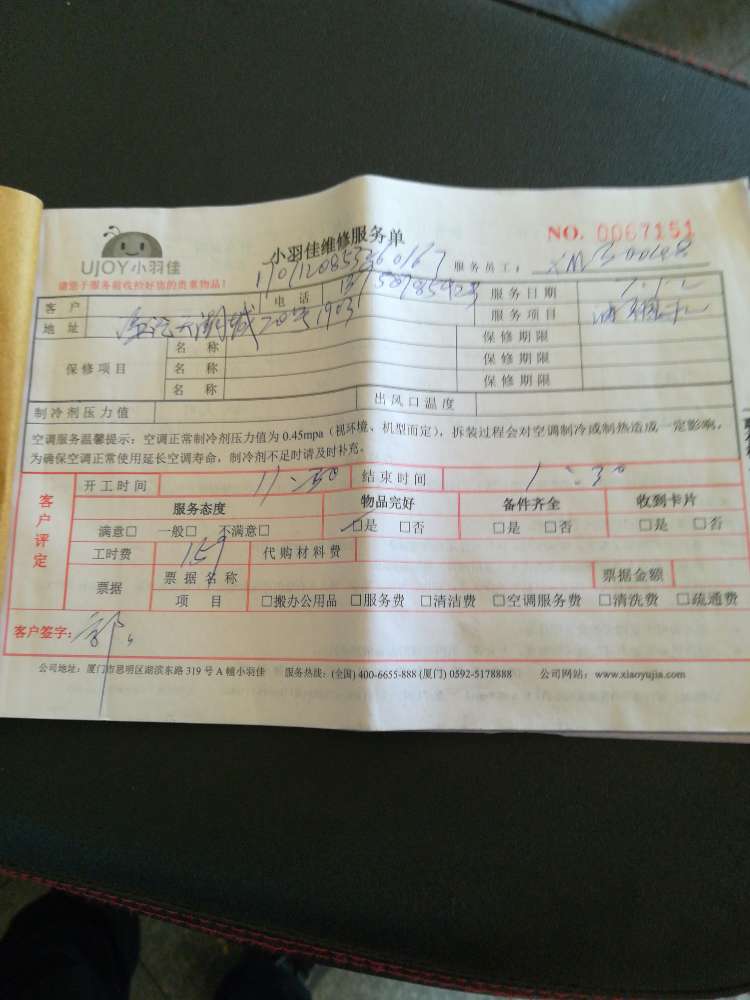 UJOY小羽佳
请您于服务前收检好您的贵重物品!
小羽佳维修服务单
NO. 0067151
服务员工:
客户 电话 服务日期
地址 20 1903 服务项目
保修项目 名称 保修期限
名称 保修期限
名称 保修期限
制冷剂压力值 出风口温度
空调服务温馨提示:空调正常制冷剂压力值为 0.45mpa(视环境、机型而定),拆装过程会对空调制冷或制热造成一定影响,
为确保空调正常使用延长空调寿命,制冷剂不足时请及时补充。
客户评定
开工时间 11:30 结束时间 1:30
服务态度 物品完好 备件齐全 收到卡片
满意□ 一般□ 不满意□ □是 □否 □是 □否 □是 □否
工时费 159 代购材料费
票据 票据名称 票据金额
项目 □搬办公用品 □服务费 □清洁费 □空调服务费 □清洗费 □疏通费
客户签字:
公司地址:厦门市思明区湖滨东路 319 号 A 幢小羽佳 服务热线:(全国) 400-6655-888 (厦门) 0592-5178888 公司网站:www.xiaoyujia.com